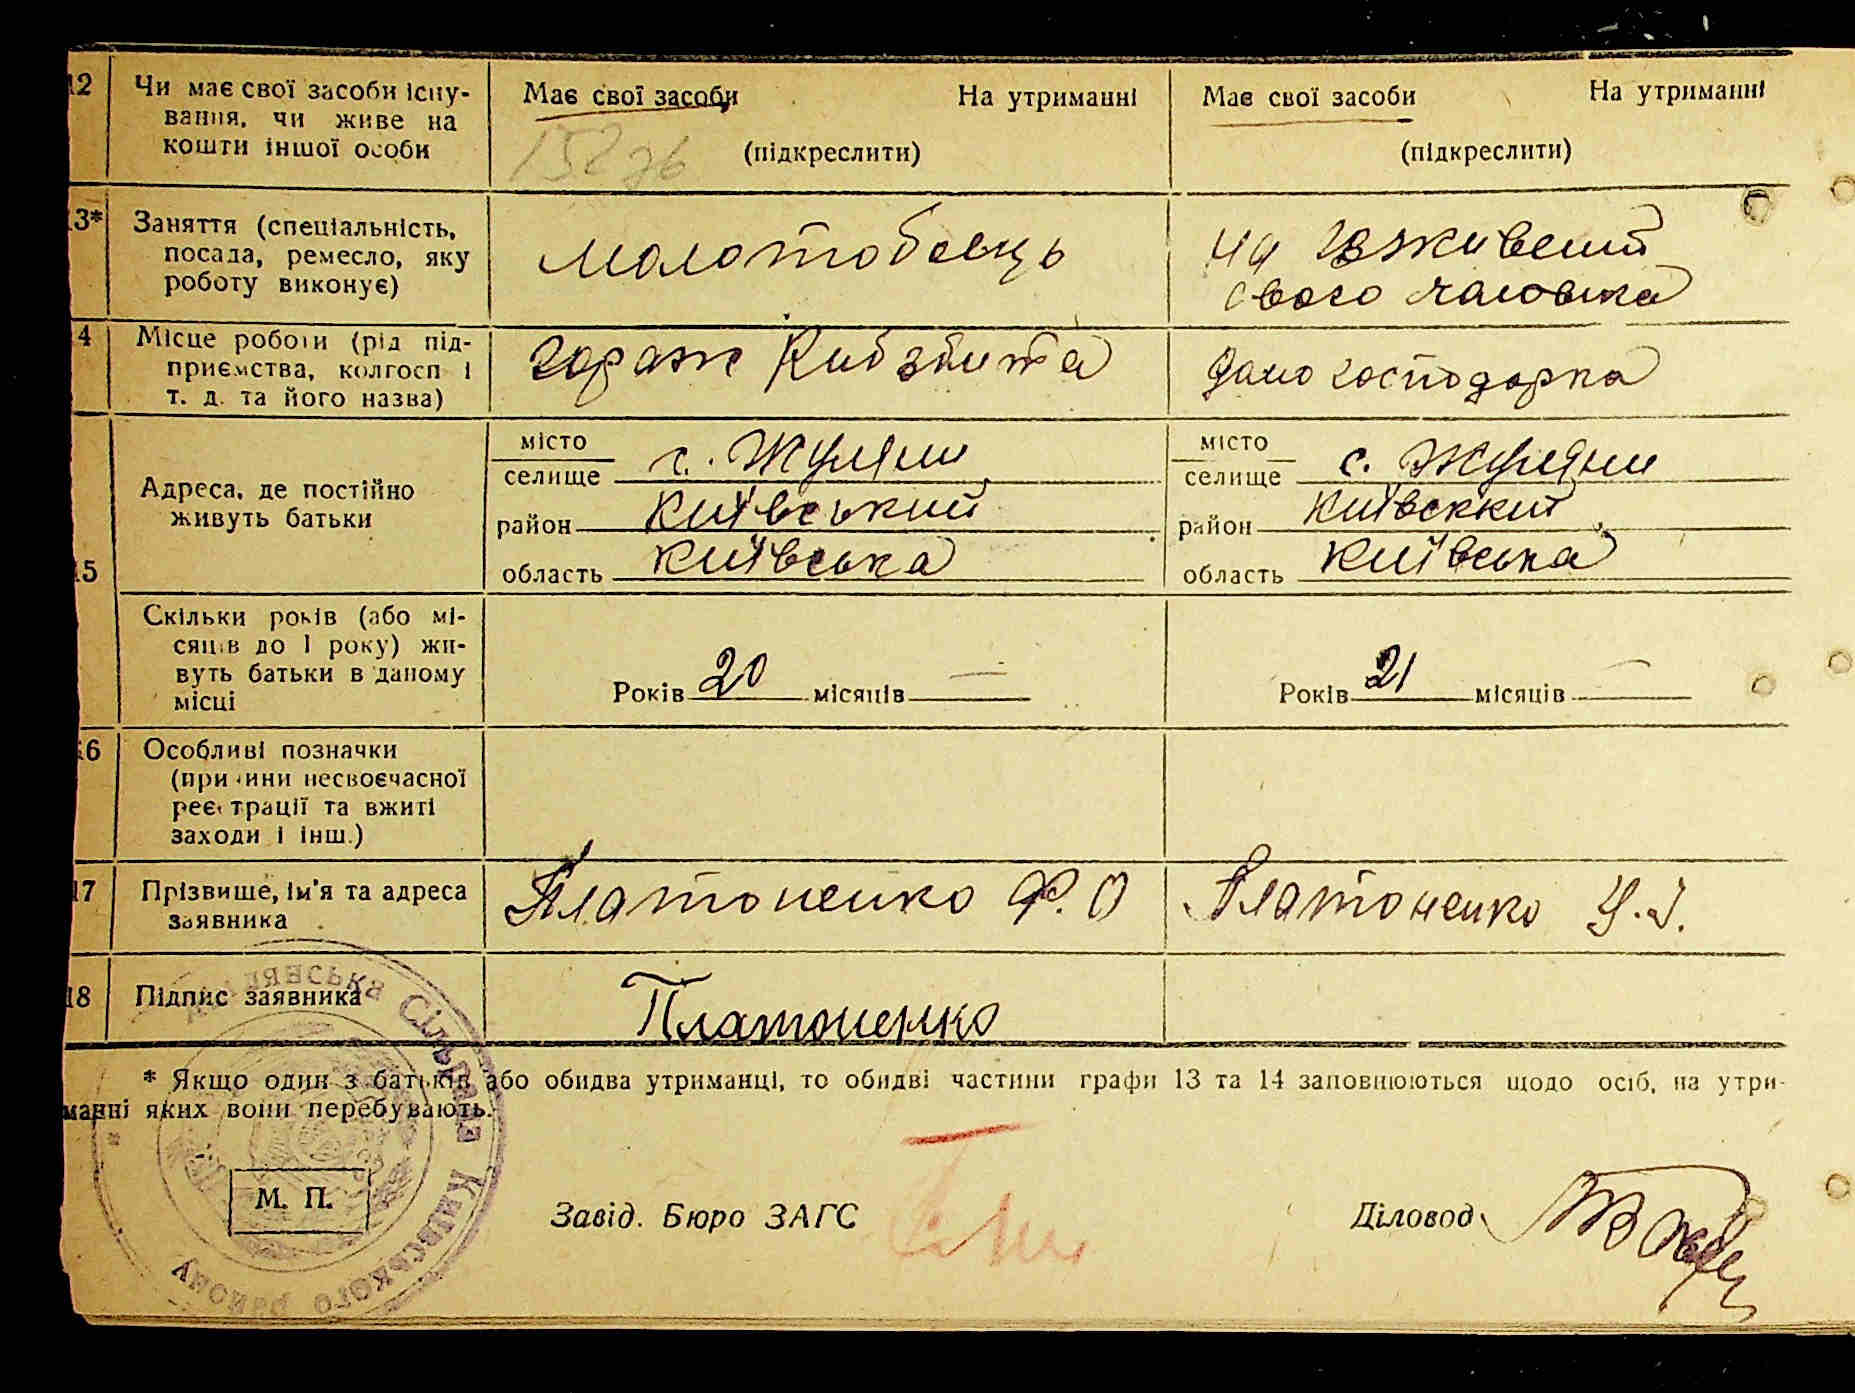 12
Чи має свої засоби існу-
вання, чи живе на
кошти іншої особи
Має свої засоби На утриманні
(підкреслити)
Має свої засоби На утриманні
(підкреслити)
13*
Заняття (спеціальність,
посада, ремесло, яку
роботу виконує)
молотобоець
на
свого чаловіка
4
Місце роботи (рід під-
приємства, колгосп і
т. д. та його назва)
гараж
Домо господарка
15
Адреса, де постійно
живуть батьки
місто
селище с. Жуляни
район Київський
область Київська
місто
селище с. Жуляни
район
область Київська
Скільки років (або мі-
сяців до 1 року) жи-
вуть батьки в даному
місці
Років 20 місяців —
Років 21 місяців —
16
Особливі позначки
(причини несвоєчасної
реєстрації та вжиті
заходи і інш.)
17
Прізвище, ім'я та адреса
заявника
Платоненко Ф. О
Платоненко У. І.
18
Підпис заявника
Платоненко
* Якщо один з батьків або обидва утриманці, то обидві частини графи 13 та 14 заповнюються щодо осіб, на утри-
манні яких вони перебувають.
М. П.
Завід. Бюро ЗАГС
Діловод
Сільрада Київського району